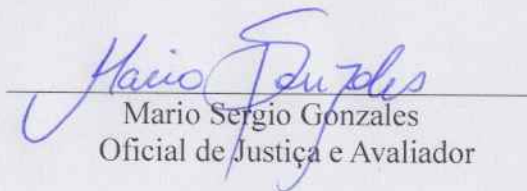 Mario Gonzales
Mario Sergio Gonzales
Oficial de Justiça e Avaliador